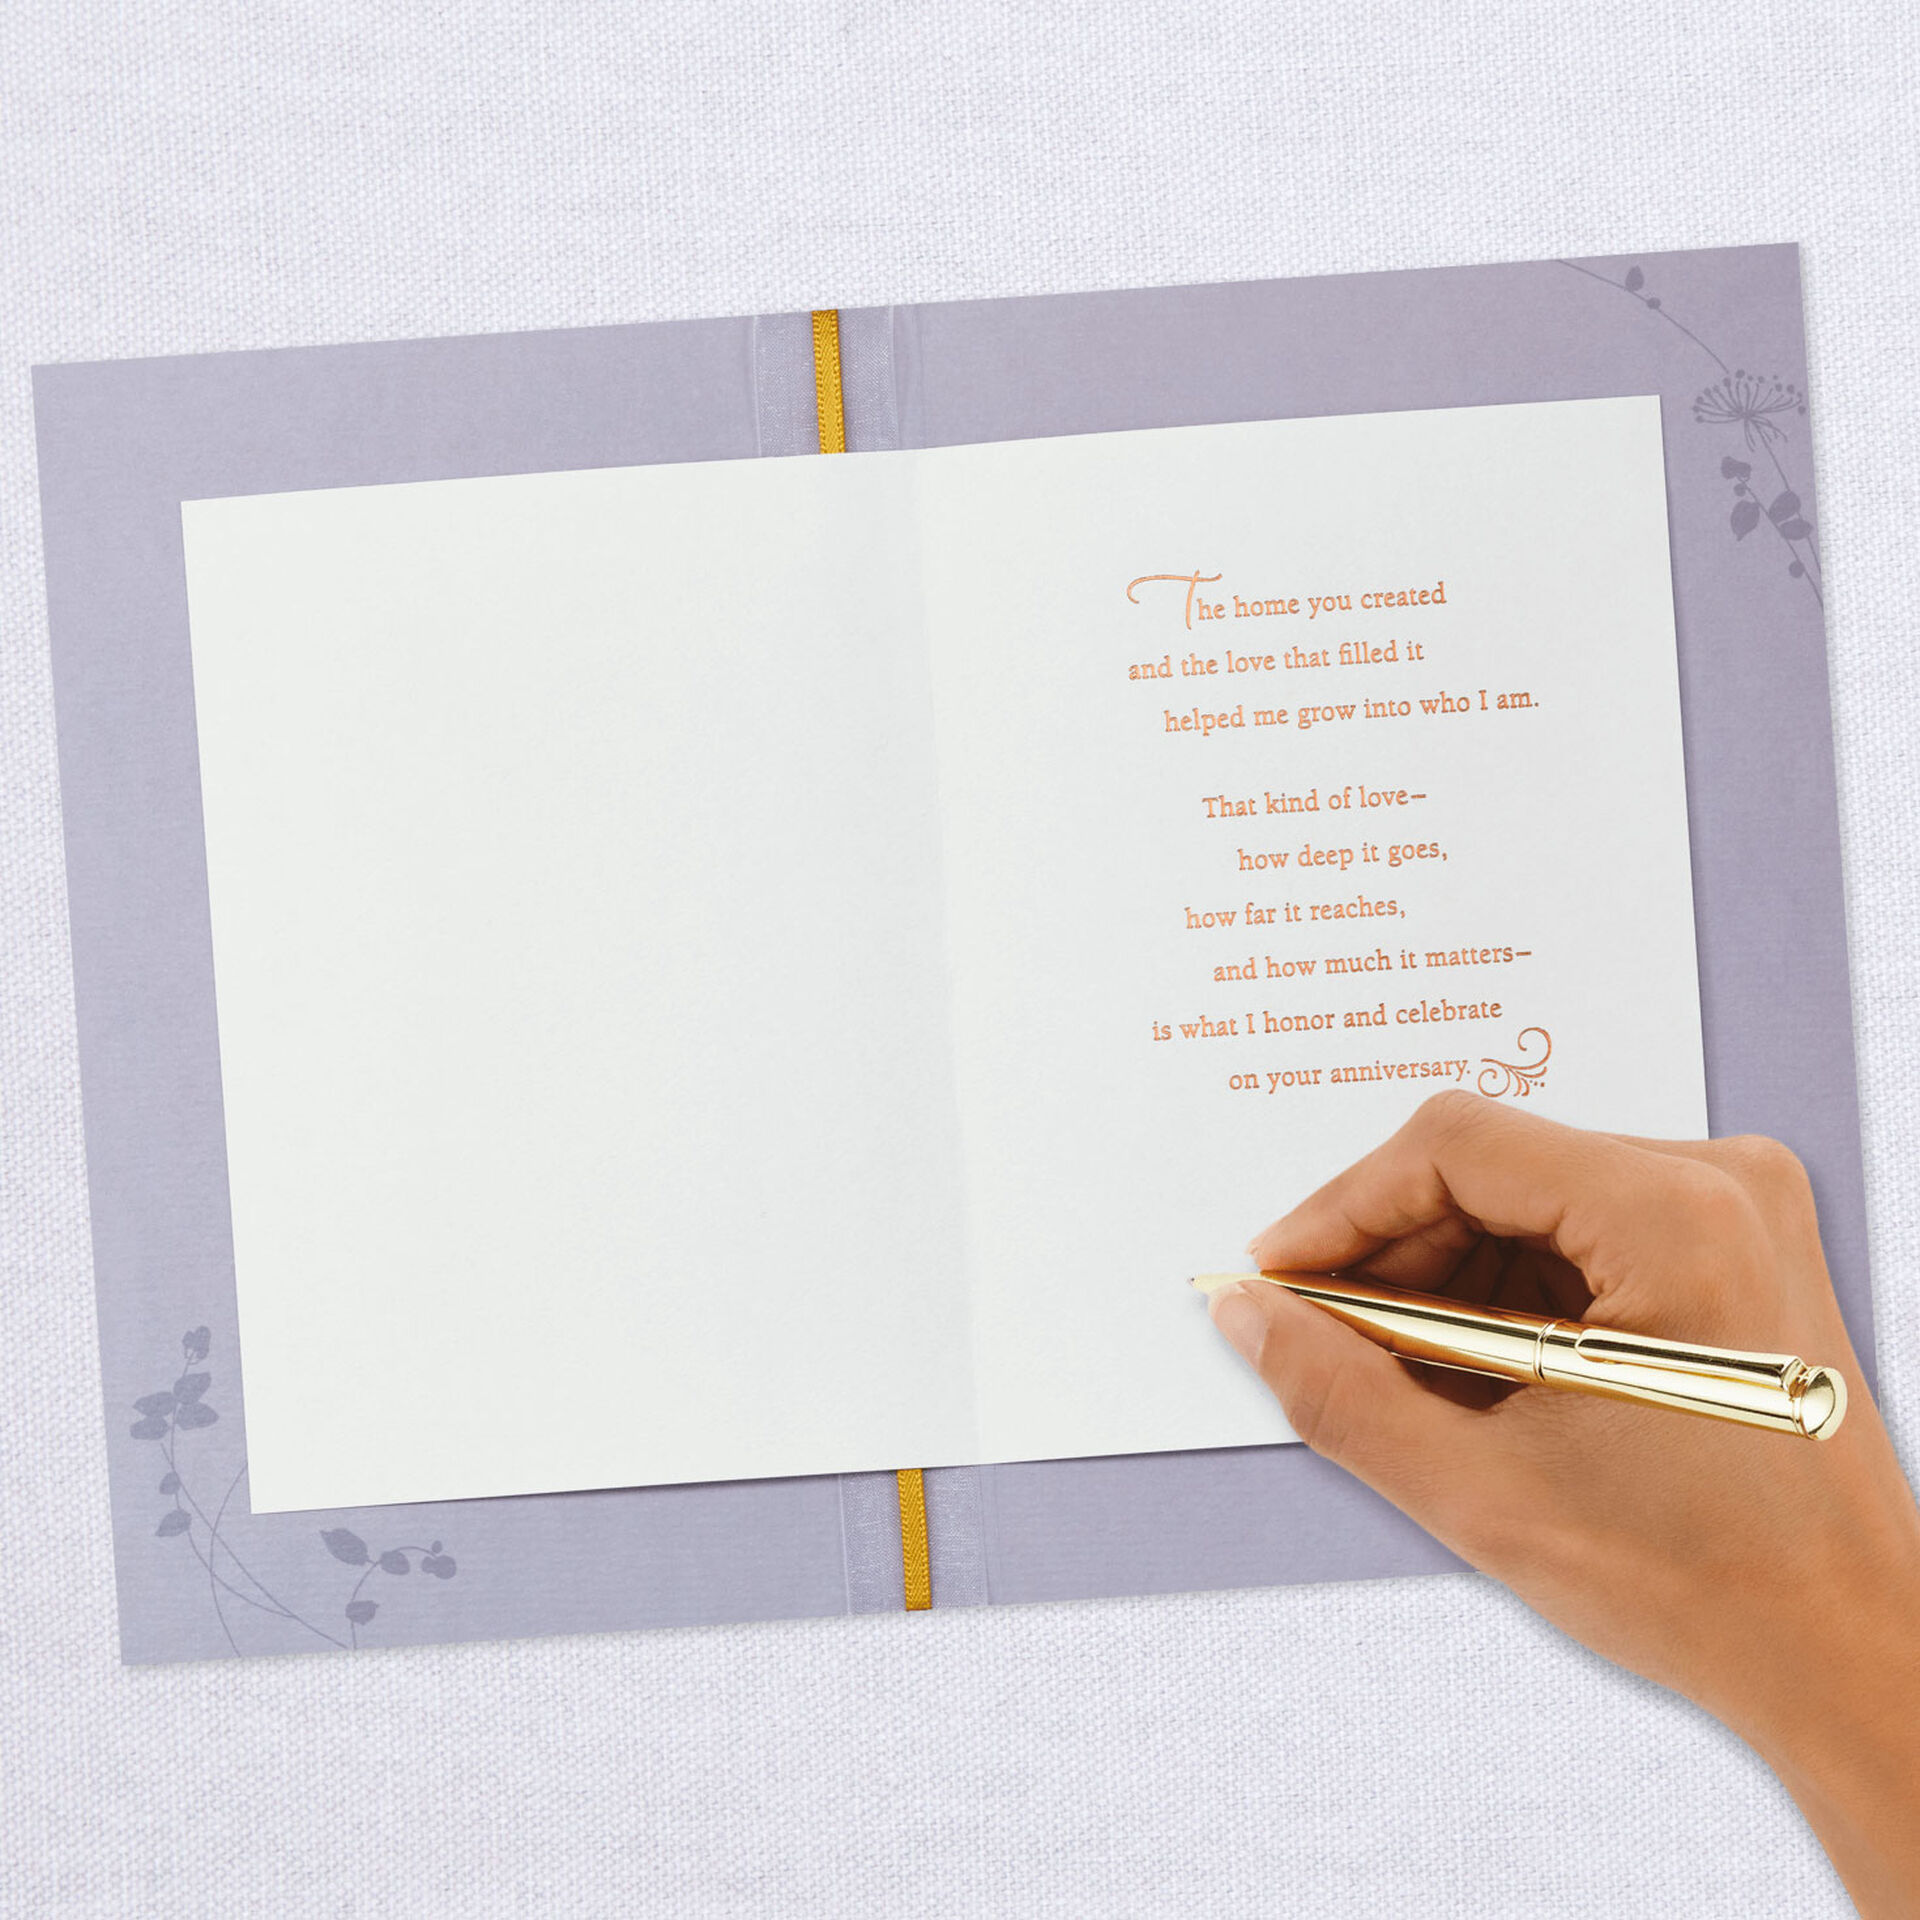 The home you created
and the love that filled it
helped me grow into who I am.
That kind of love–
how deep it goes,
how far it reaches,
and how much it matters–
is what I honor and celebrate
on your anniversary.